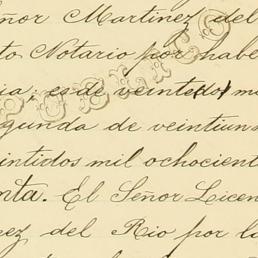 ñor Martinez del
to Notario por habe
ia; es de veinte(1) m
egunda de veintiun
eintidos mil ochocient
enta. El Señor Licen
ez del Rio por la